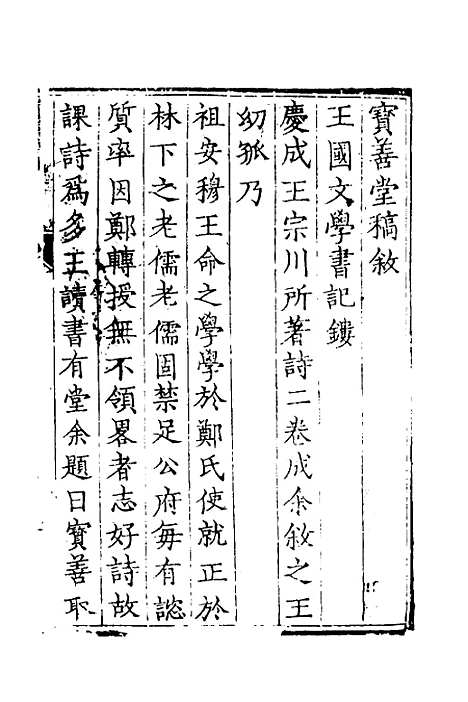 寶善堂稿敘
王國文學書記鏤
慶成王宗川所著詩二卷成余敘之王
幼孤乃
祖安穆王命之學學於鄭氏使就正於
林下之老儒老儒固禁足公府每有諮
質率因鄭轉授無不領畧者志好詩故
課詩爲多王讀書有堂余題曰寳善取